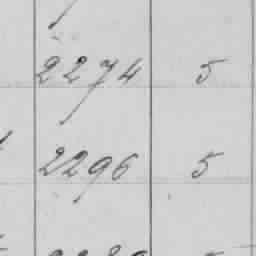 2274 5
2296 5